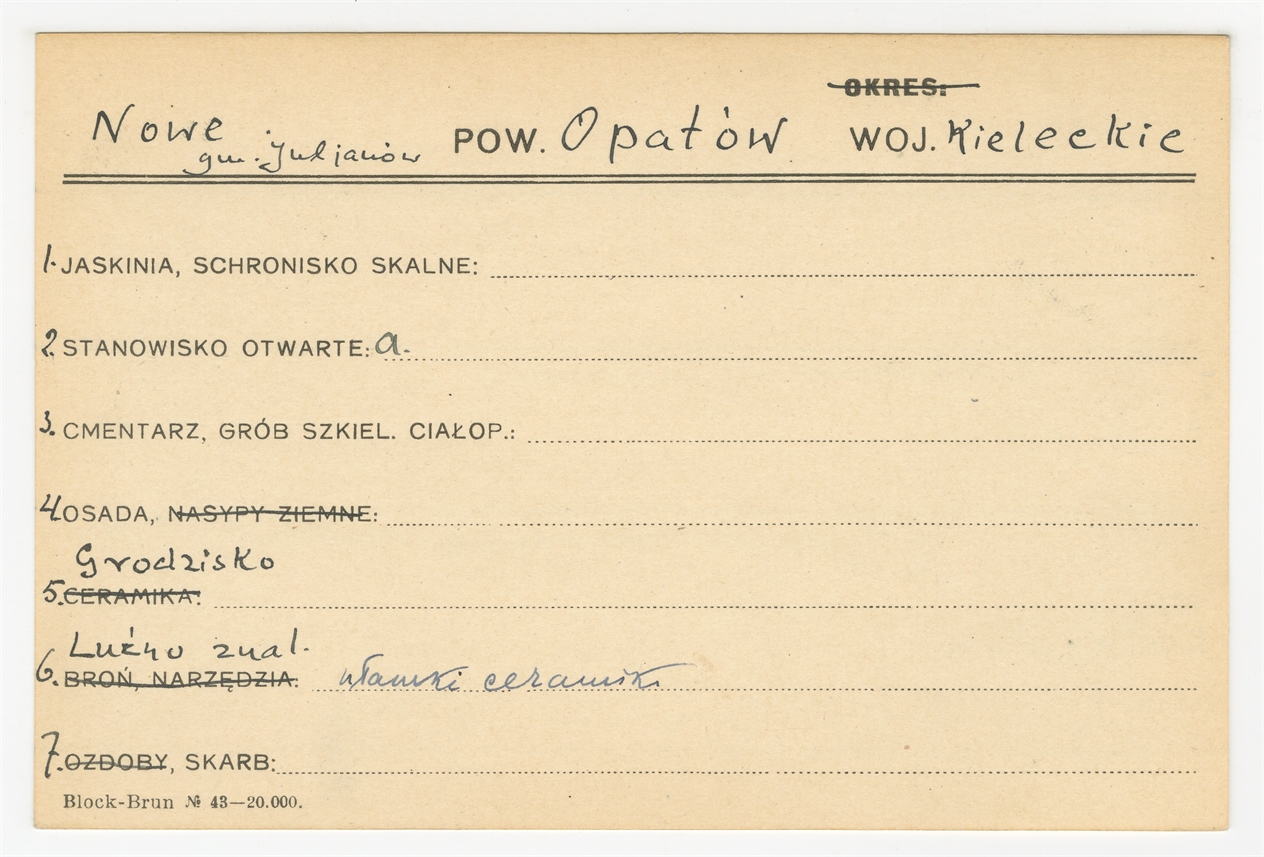 OKRES:
Nowe POW. Opatów WOJ. Kieleckie
gm. Juljanów
1. JASKINIA, SCHRONISKO SKALNE:
2. STANOWISKO OTWARTE: a.
3. CMENTARZ, GRÓB SZKIEL. CIAŁOP.:
4 OSADA, NASYPY ZIEMNE:
Grodzisko
5. CERAMIKA:
Luźno znal.
6. BROŃ, NARZĘDZIA: ułamki ceramiki
7. OZDOBY, SKARB:
Block-Brun № 43—20.000.